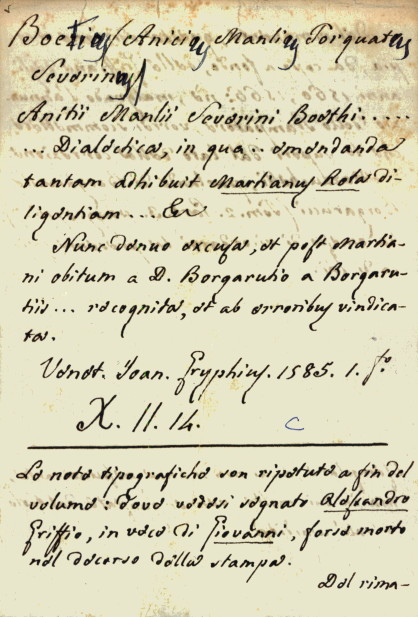 Boetius (Anicius Manlius Torquatus
Severinus)
Anitii Manlii Severini Boethi.....
... Dialectica, in qua .. emendanda
tantam adhibuit Martianus Rota di-
ligentiam .... Et
Nunc denuo excusa, et post Martia-
ni obitum a D. Borgarutio a Borgaru-
tiis... recognita, et ab erroribus vindica-
ta.
Venet. Joan. Gryphius. 1585. 1. fo.
X. 11. 14.
C
Le note tipografiche son ripetute a fin del
volume: dove vedesi segnato Alessandro
Griffio, in vece di Giovanni, forse morto
nel decorso della stampa.
Del rima-